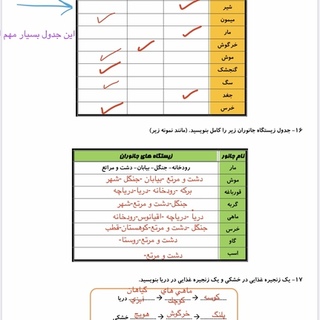 شیر
میمون
این جدول بسیار مهم
مار
خرگوش
موش
گنجشک
سگ
جغد
خرس
۱۶- جدول زیستگاه جانوران زیر را کامل بنویسید. (مانند نمونه زیر)
نام جانور زیستگاه های جانوران
مار رودخانه - جنگل - بیابان - دشت و مراتع
موش دشت و مرتع - بیابان - جنگل - شهر
قورباغه برکه - رودخانه - دریا - دریاچه
گربه جنگل - دشت و مرتع - شهر
ماهی دریا - دریاچه - اقیانوس - رودخانه
خرس جنگل - دشت و مرتع - کوهستان - قطب
گاو دشت و مرتع - روستا -
اسب دشت و مرتع -
۱۷- یک زنجیره غذایی در خشکی و یک زنجیره غذایی در دریا بنویسید.
دریا گیاهان آبزی ماهی های کوچک کوسه
خشکی هویج خرگوش پلنگ